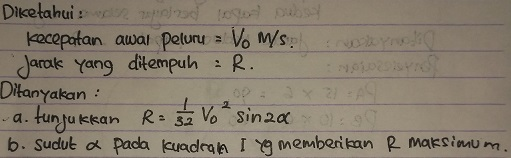 Diketahui :
kecepatan awal peluru = V₀ M/s.
Jarak yang ditempuh : R.
Ditanyakan :
a. tunjukkan R = 1/32 V₀² sin 2α
b. sudut α pada kuadran I yg memberikan R maksimum.